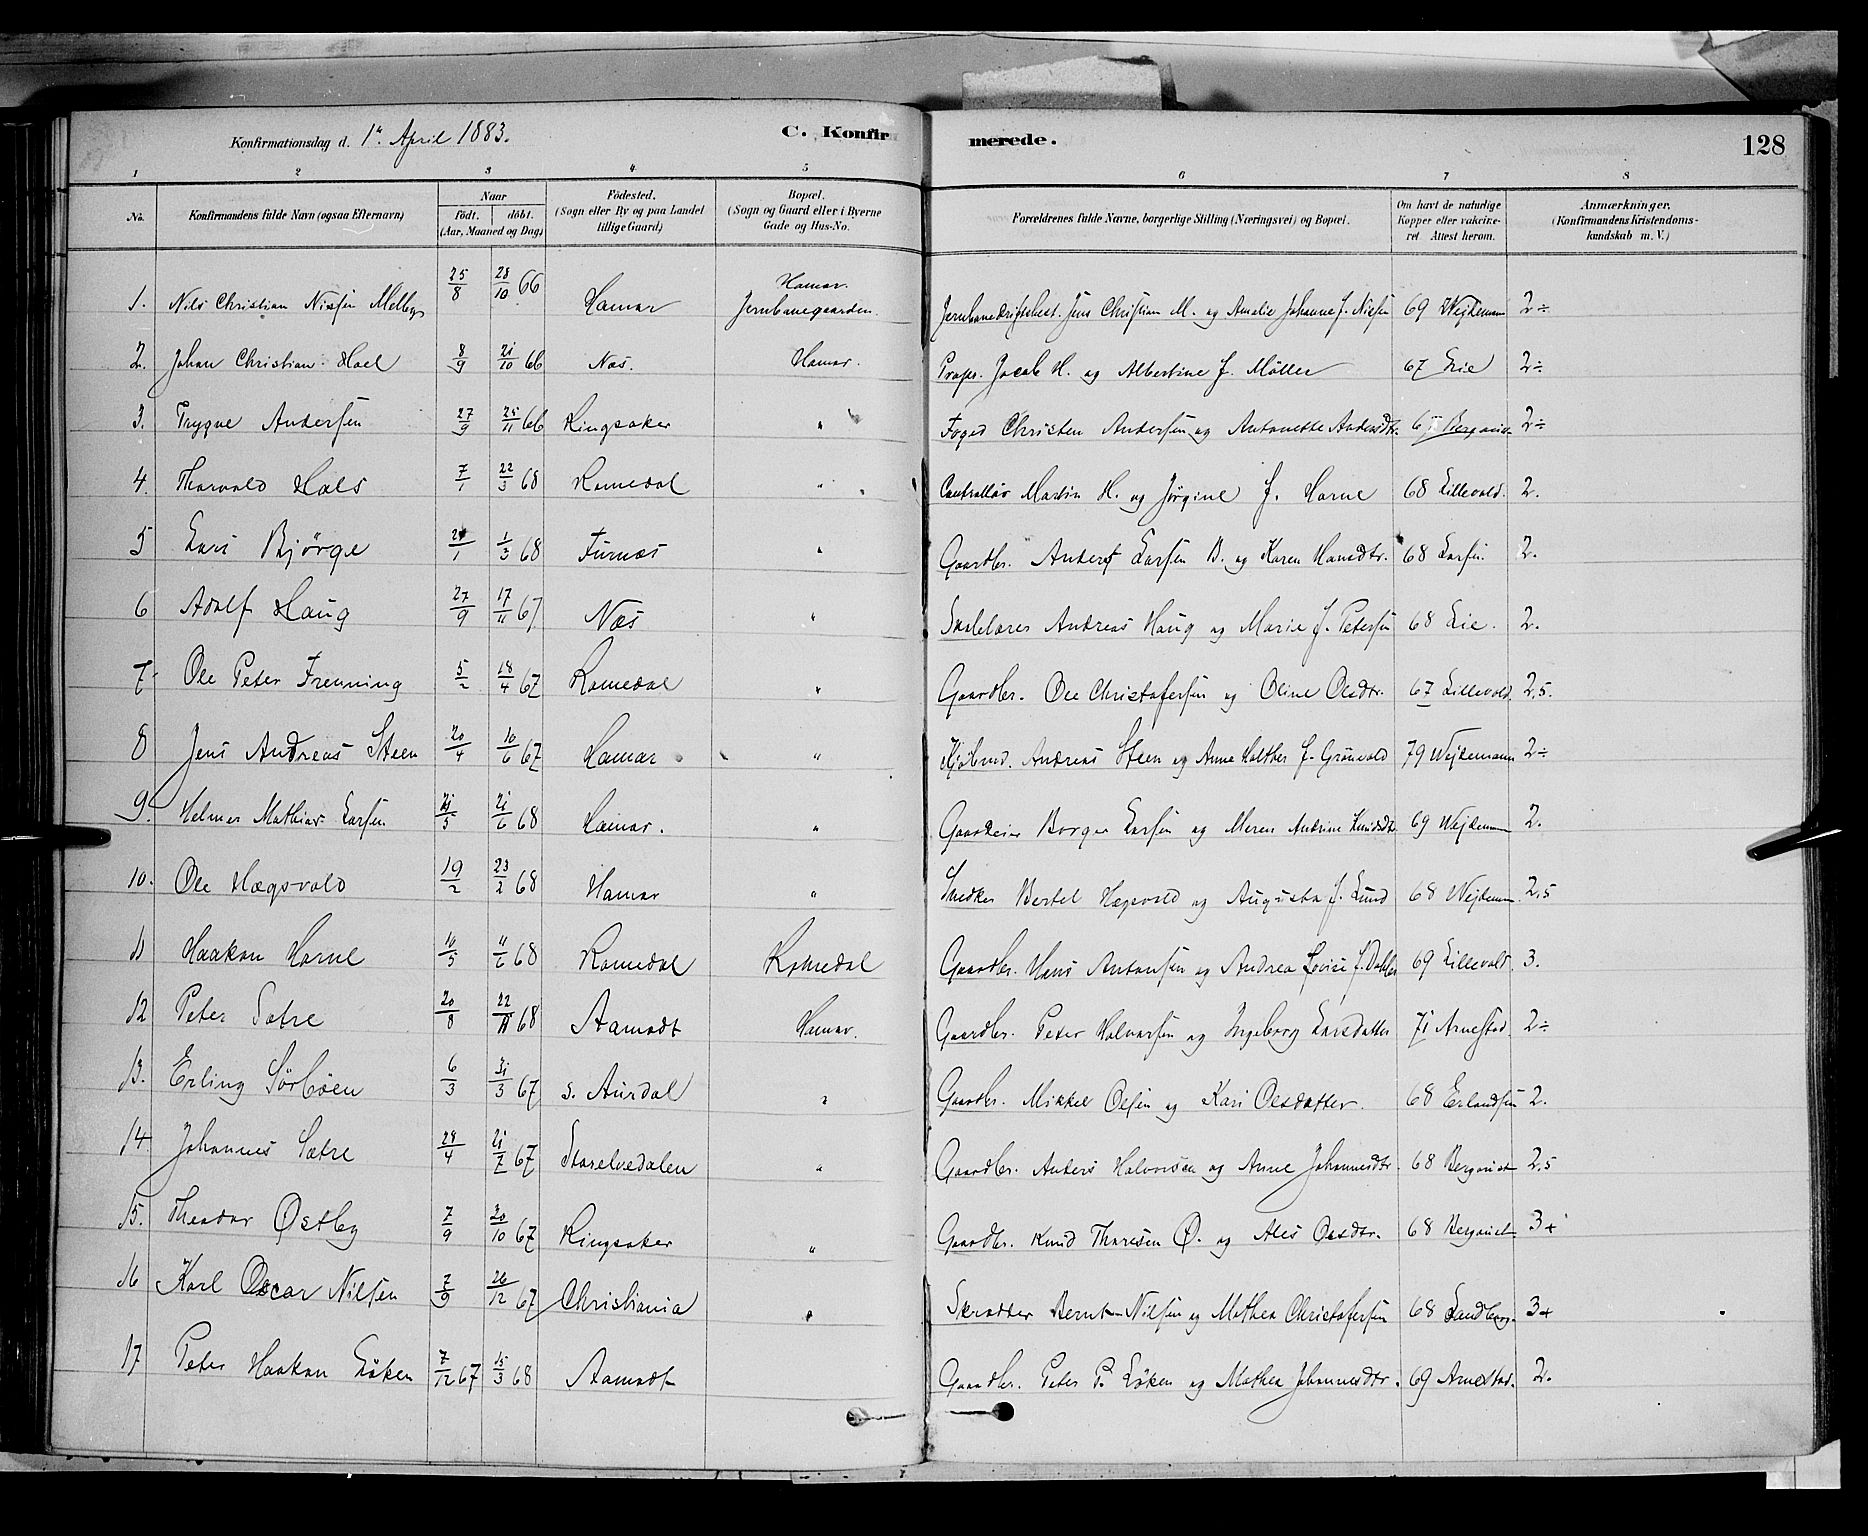 Konfirmationsdag d. 1ste April 1883. C. Konfirmerede. 128
1 2 3 4 5 6 7 8
No. Konfirmandens fulde Navn (ogsaa Efternavn) Naar født. døbt. (Aar, Maaned og Dag) Födested. (Sogn eller By og paa Landet tillige Gaard) Bopæl. (Sogn og Gaard eller i Byerne Gade og Hus-No. Forældrenes fulde Navne, borgerlige Stilling (Næringsvei) og Bopæl. Om havt de naturlige Kopper eller vakcineret Attest herom. Anmærkninger. (Konfirmandens Kristendomskundskab m. V.)
1. Nils Christian Nissen Melbye 25/8 28/10 66 Hamar Hamar. Jernbanegaarden. Jernbanedriftsbest. Jens Christian M. og Amalie Johanne f. Nissen 69 Wejdemann 2÷
2. Johan Christian Hoel 8/9 21/10 66 Næs. Hamar. Propr. Jacob H. og Albertine f. Møller 67 Lie 2÷
3. Trygve Andersen 27/9 25/11 66 Ringsaker " Foged Christen Andersen og Antonette Andersdtr. 67 Bergqvist 2÷
4. Thorvald Hals 7/1 22/3 68 Romedal " Controllør Martin H. og Jørgine f. Horne 68 Lillevold. 2.
5 Lars Bjørge 1/3 68 Furnæs " Gaardbr. Anders Larsen B. og Karen Hansdtr. 68 Larsen. 2.
6 Adolf Haug 27/9 17/11 67 Næs " Skolelærer Andreas Haug og Marie f. Petersen 68 Lie. 2.
7 Ole Peter Frenning 5/2 18/4 67 Romedal " Gaardbr. Ole Christofersen og Oline Olsdtr. 67 Lillevold. 2,5.
8 Jens Andreas Steen 20/4 10/6 67 Hamar " Kjøbmd. Andreas Steen og Anne Malthea f. Grönvold 79 Wejdemann 2÷
9. Helmer Mathias Larsen 21/5 21/6 68 Hamar. " Gaardeier Borger Larsen og Maren Andrine Knudsdtr. 69 Wejdemann 2.
10. Ole Hægsvold 19/2 23/2 68 Hamar " Snedker Bertel Hægsvold og Augusta f. Lund 68 Wejdemann. 2,5
11 Haakon Horne 10/5 11/6 68 Romedal Romedal Gaardbr. Hans Antonsen og Andrea Lovise f. 69 Lillevold. 3.
12 Peter Sætre 20/8 22/11 68 Aamodt Hamar. Gaardbr. Peter Halvorsen og Ingeborg Larsdatter 71 Arnestad. 2÷
13. Erling Sörbøen 6/3 31/3 67 s. Aurdal " Gaardbr. Mikkel Olsen og Kari Olsdatter. 68 Erlandsen 2.
14. Johannes Sætre 28/4 21/7 67 Storelvedalen " Gaardbr. Anders Halvorsen og Anne Johannesdtr. 68 Bergqvist 2,5
15. Theodor Østby 7/9 20/10 67 Ringsaker " Gaardbr. Knud Thoresen Ø. og Ales Olsdtr. 68 Bergqvist 3+
16 Karl Oscar Nilsen 7/9 26/12 67 Christiania " Skrædder Bernt Nilsen og Mathea Christofersen 68 Sandberg. 3+
17 Peter Haakon Løken 7/12 67 15/3 68 Aamodt Gaardbr. Peter P. Løken og Mathea Johannesdtr. 69 Arnestad. 2.